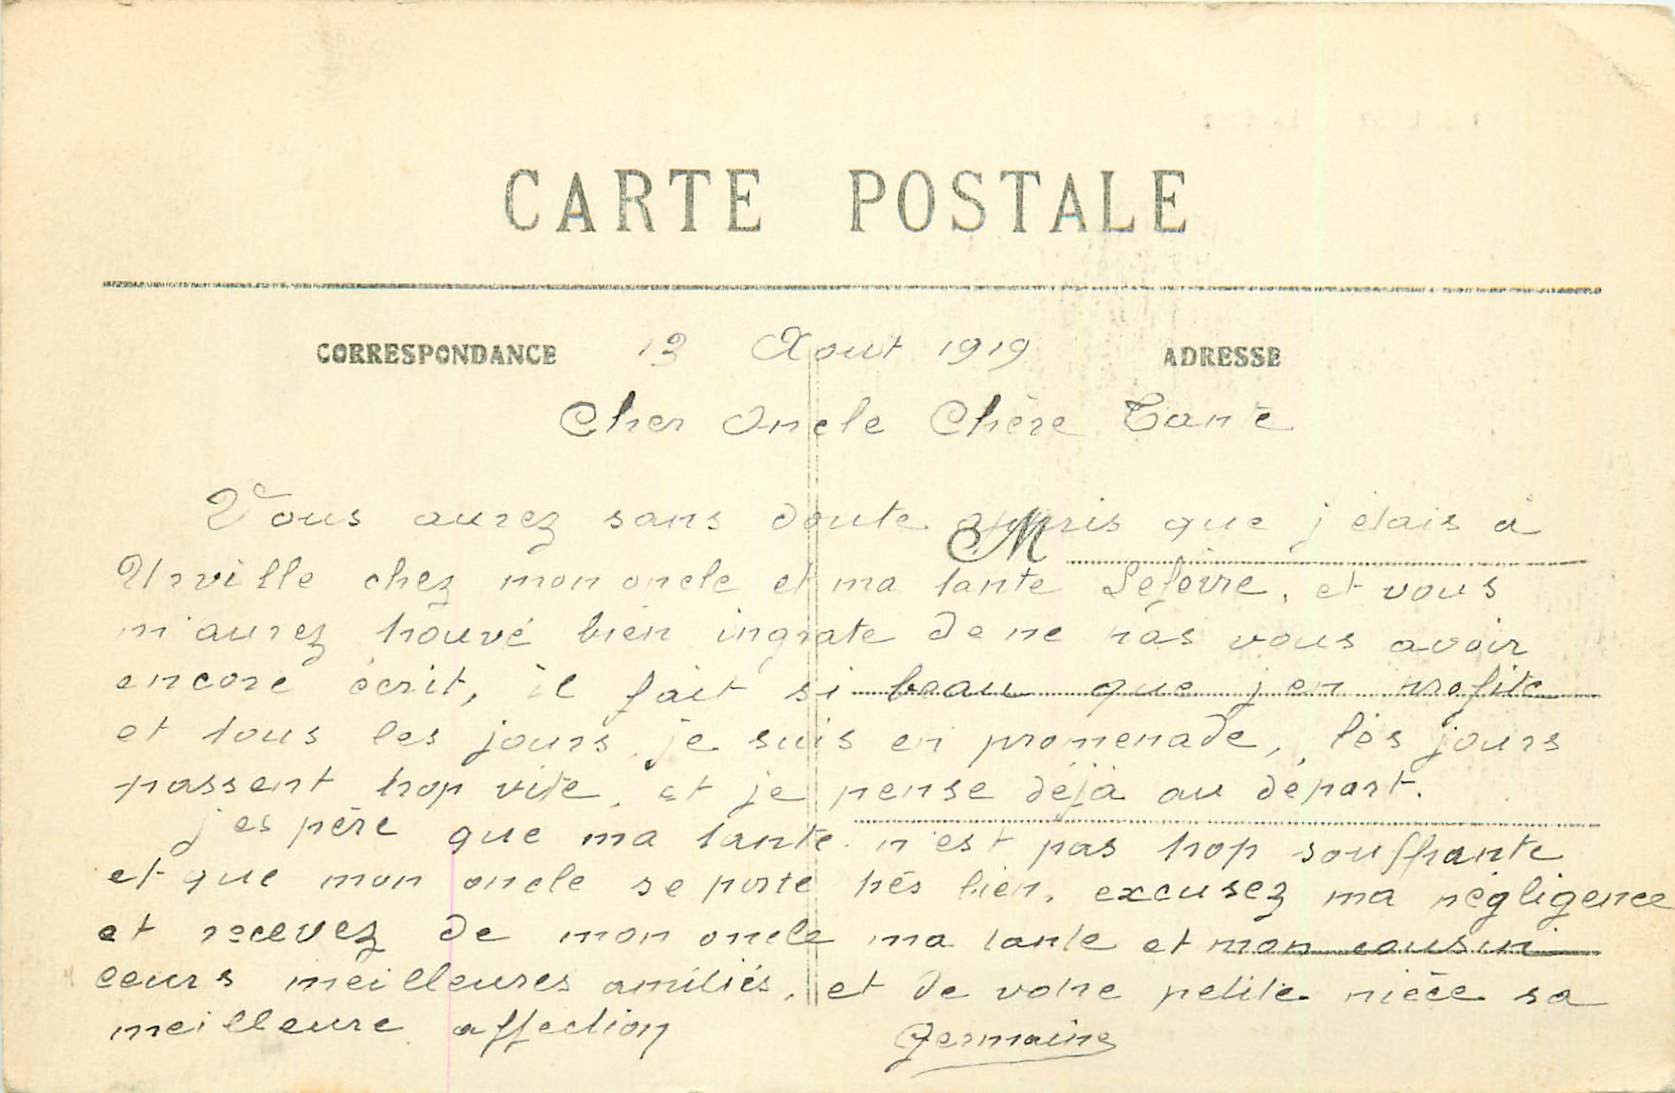 CARTE POSTALE
CORRESPONDANCE 13 Aout 1919 ADRESSE
Cher Oncle Chère Tante
Vous aurez sans doute appris que j'étais à
M
Urville chez mon oncle et ma tante Lefèvre, et vous
m'aurez trouvé bien ingrate de ne pas vous avoir
encore écrit, il fait si beau que j'en profite
et tous les jours je suis en promenade, les jours
passent trop vite, et je pense déjà au départ.
j'espère que ma tante n'est pas trop souffrante
et que mon oncle se porte très bien, excusez ma négligence
et recevez de mon oncle ma tante et mon cousin
leurs meilleures amitiés, et de votre petite nièce sa
meilleure affection Germaine